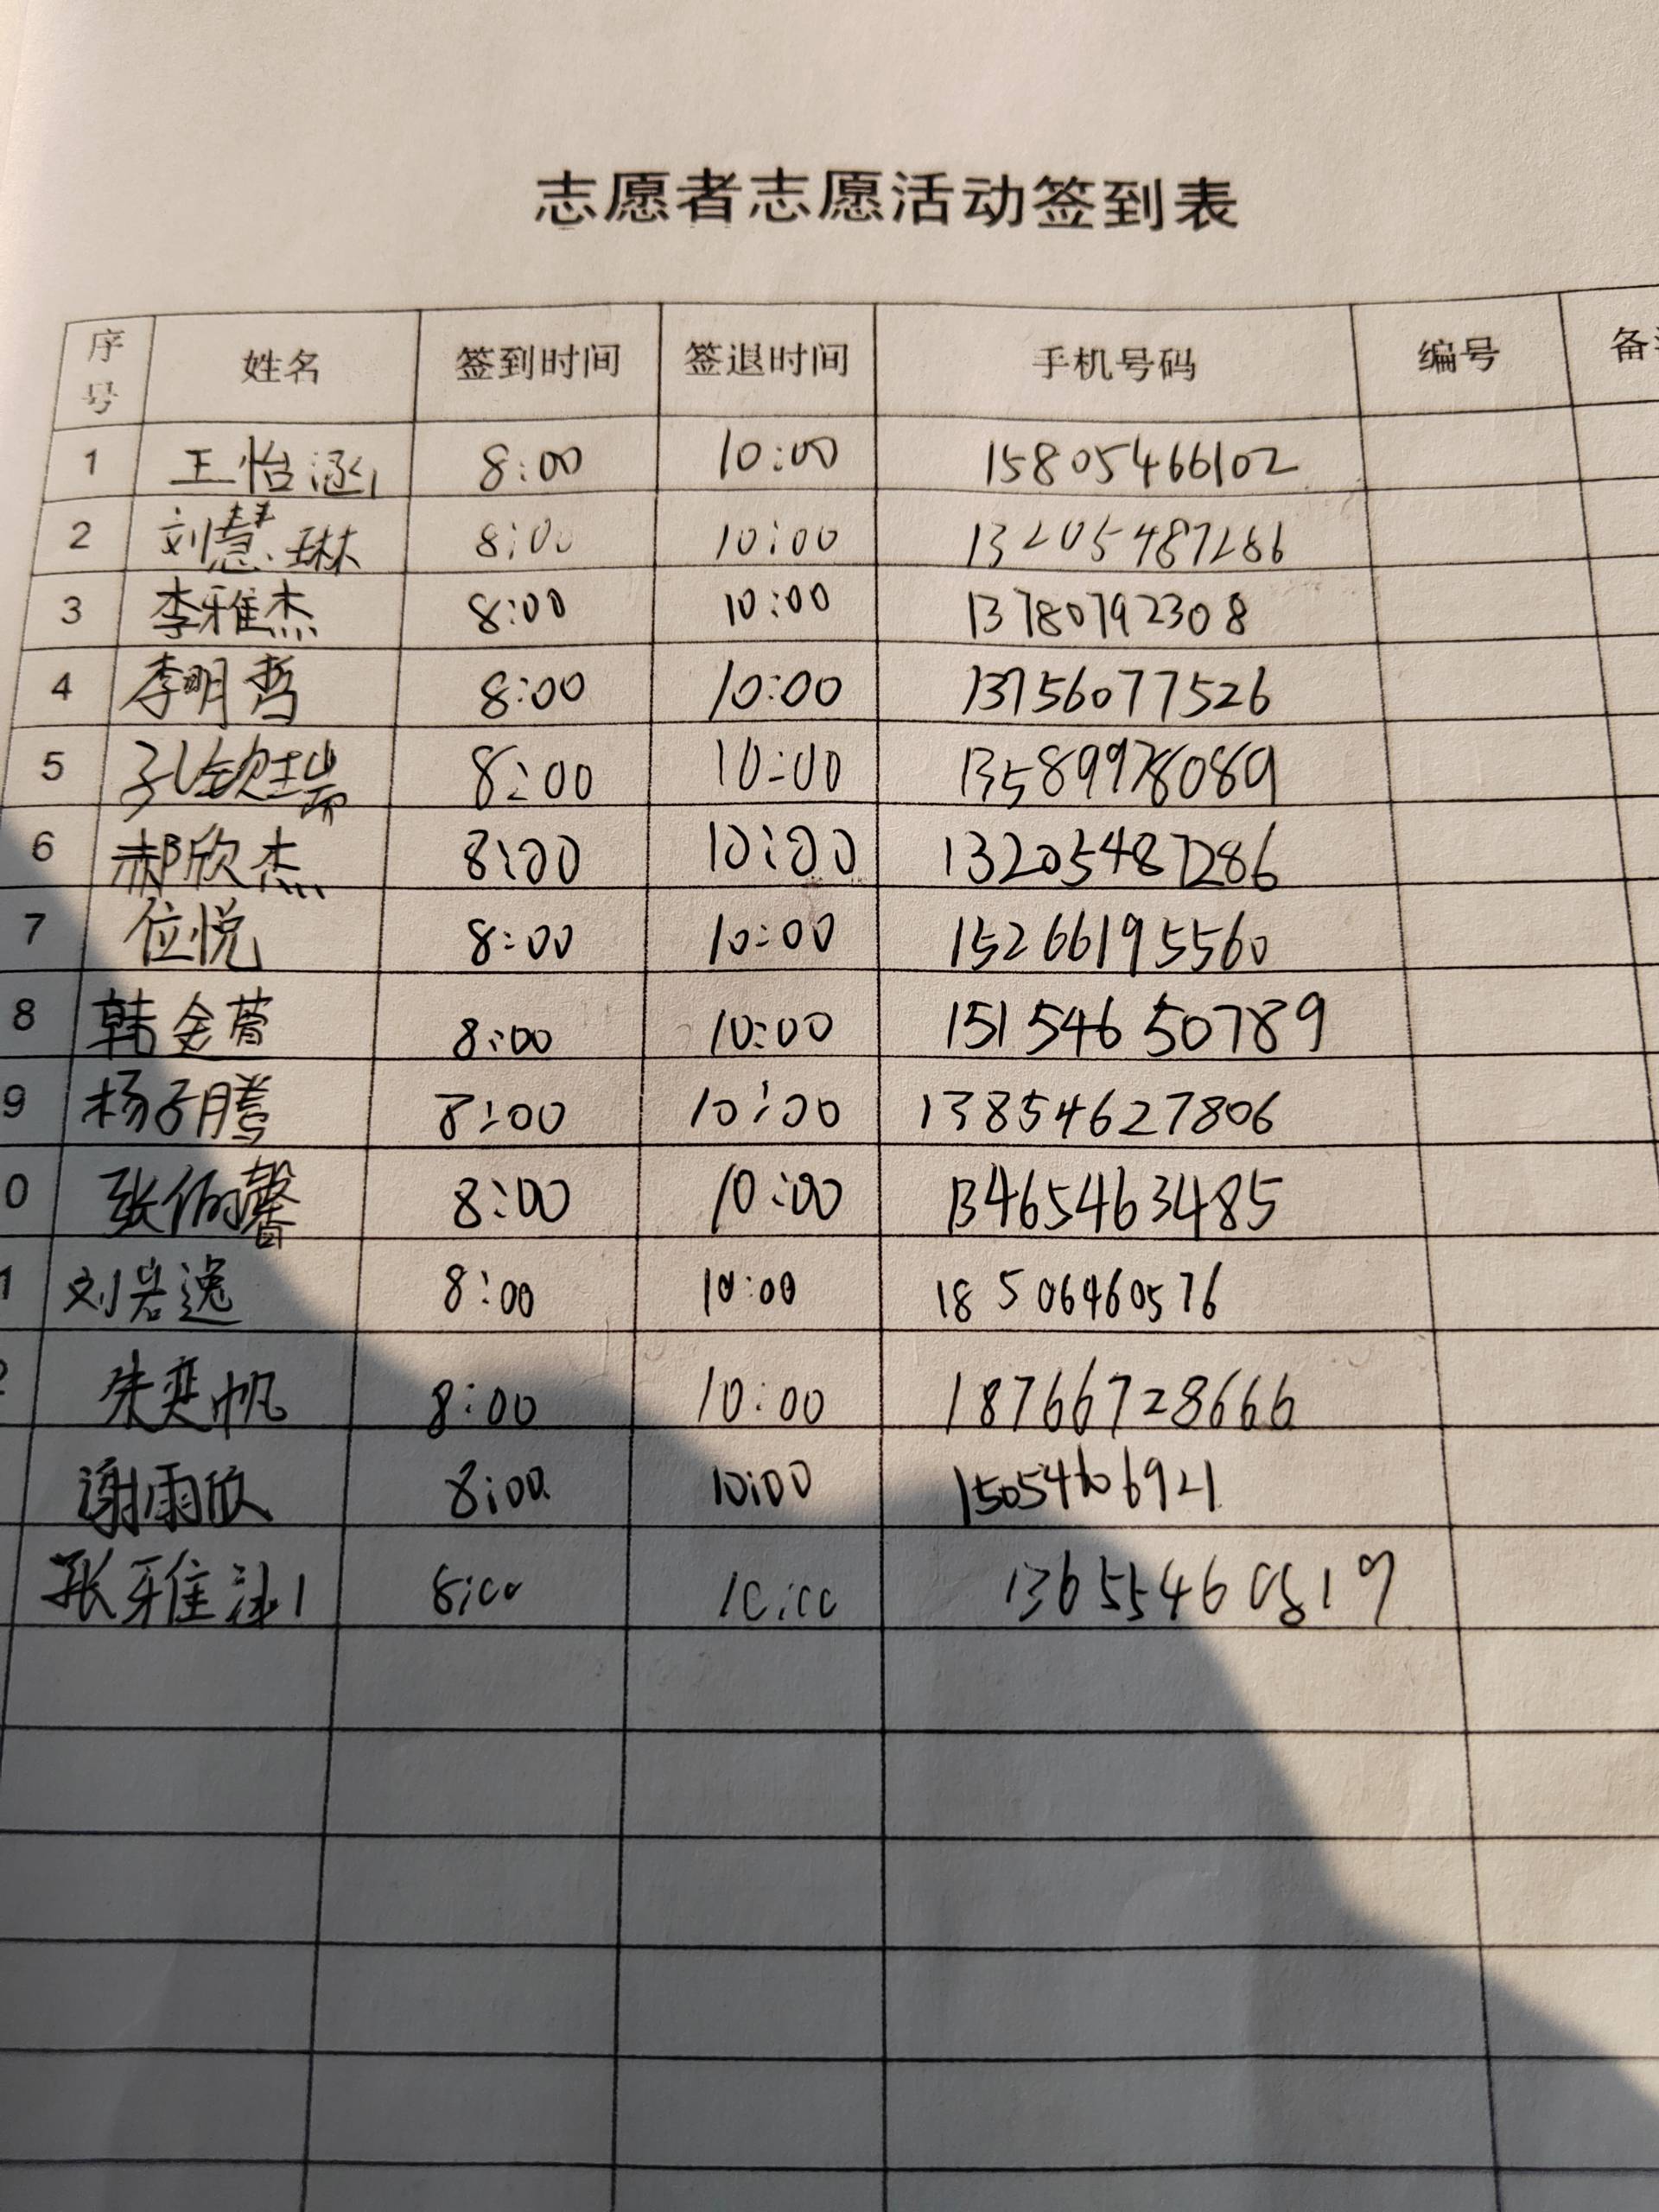 志愿者志愿活动签到表
序号 姓名 签到时间 签退时间 手机号码 编号 备
1 王怡涵 8:00 10:00 15805466102
2 刘慧琳 8:00 10:00 13205487286
3 李雅杰 8:00 10:00 13780792308
4 李明哲 8:00 10:00 13756077526
5 孔钦瑞 8:00 10:00 13589978089
6 郝欣杰 8:00 10:00 13205487286
7 位悦 8:00 10:00 15266195560
8 韩金菁 8:00 10:00 15154650789
9 杨子腾 8:00 10:00 13854627806
0 张佰馨 8:00 10:00 13465463485
1 刘岩逸 8:00 10:00 18506460576
2 朱奕帆 8:00 10:00 18766728666
谢雨欣 8:00 10:00
张雅涵 8:00 10:00 13655460819